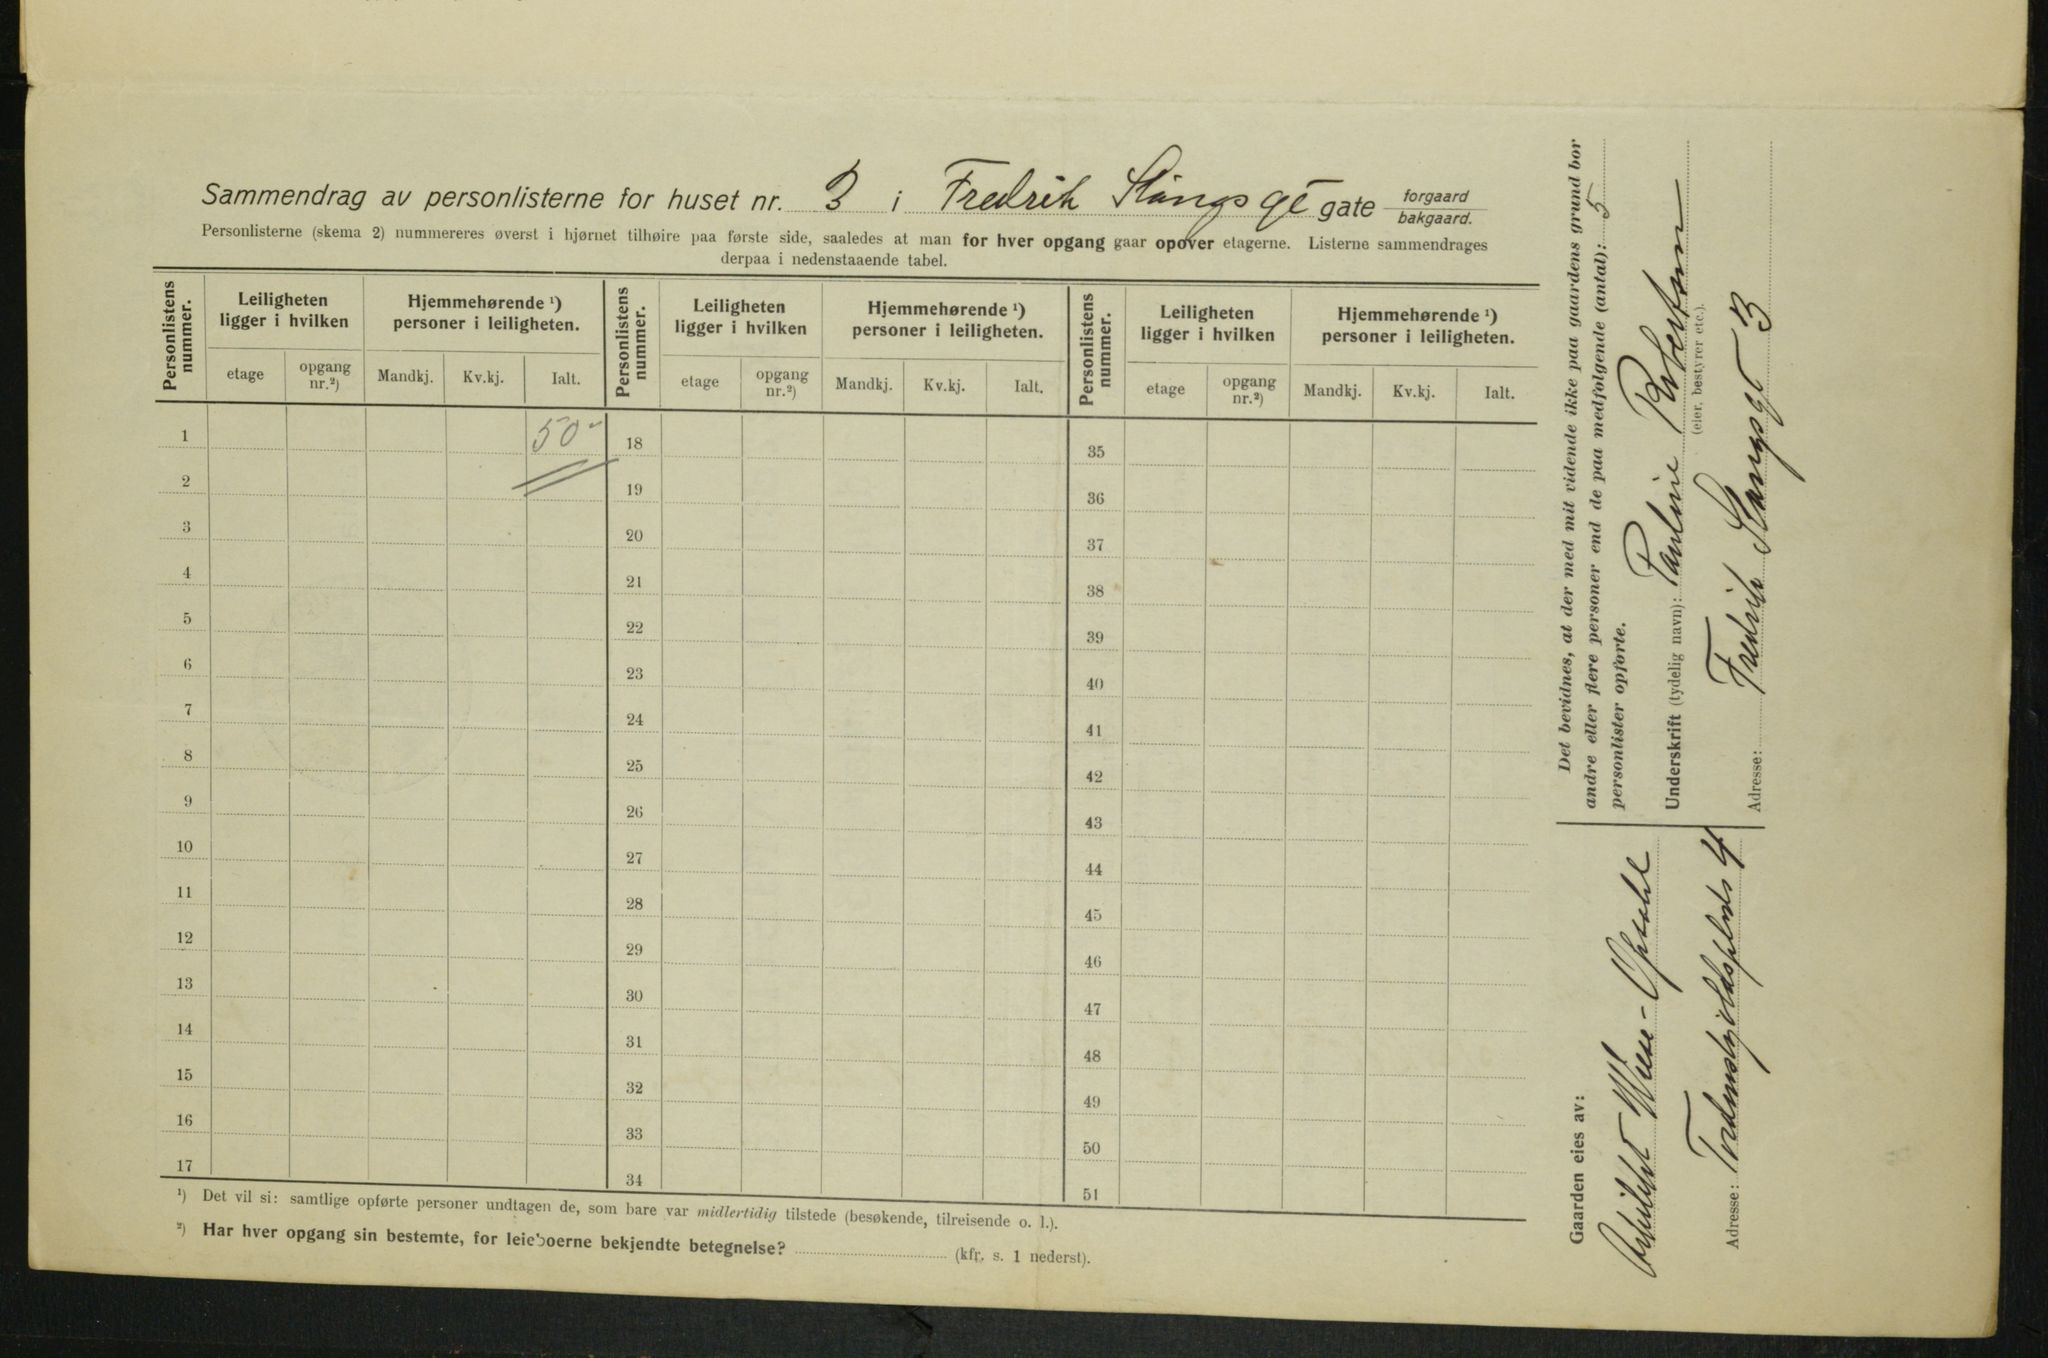 Sammendrag av personlisterne for huset nr. 3 i Fredrik Stangs gt gate forgaard bakgaard.
Personlisterne (skema 2) nummereres øverst i hjørnet tilhøire paa første side, saaledes at man for hver opgang gaar opover etagerne. Listerne sammendrages
derpaa i nedenstaaende tabel.
Personlistens nummer.
Leiligheten ligger i hvilken
etage
opgang nr.²)
Hjemmehørende ¹) personer i leiligheten.
Mandkj.
Kv.kj.
Ialt.
Personlistens nummer.
Leiligheten ligger i hvilken
etage
opgang nr.²)
Hjemmehørende ¹) personer i leiligheten.
Mandkj.
Kv.kj.
Ialt.
Personlistens nummer.
Leiligheten ligger i hvilken
etage
opgang nr.²)
Hjemmehørende ¹) personer i leiligheten.
Mandkj.
Kv.kj.
Ialt.
1 50 18 35
2 19 36
3 20 37
4 21 38
5 22 39
6 23 40
7 24 41
8 25 42
9 26 43
10 27 44
11 28 45
12 29 46
13 30 47
14 31 48
15 32 49
16 33 50
17 34 51
¹) Det vil si: samtlige opførte personer undtagen de, som bare var midlertidig tilstede (besøkende, tilreisende o. l.).
²) Har hver opgang sin bestemte, for leieboerne bekjendte betegnelse? (kfr. s. 1 nederst).
Det bevidnes, at der med mit vidende ikke paa gaardens grund bor
andre eller flere personer end de paa medfølgende (antal): 5
personlister opførte.
Underskrift (tydelig navn): Pauline Robertson
(eier, bestyrer etc.).
Adresse: Fredrik Stangsgt 3
Gaarden eies av:
Arkitekt Wiese-Opsahl
Adresse: Tordenskjoldsplads 4